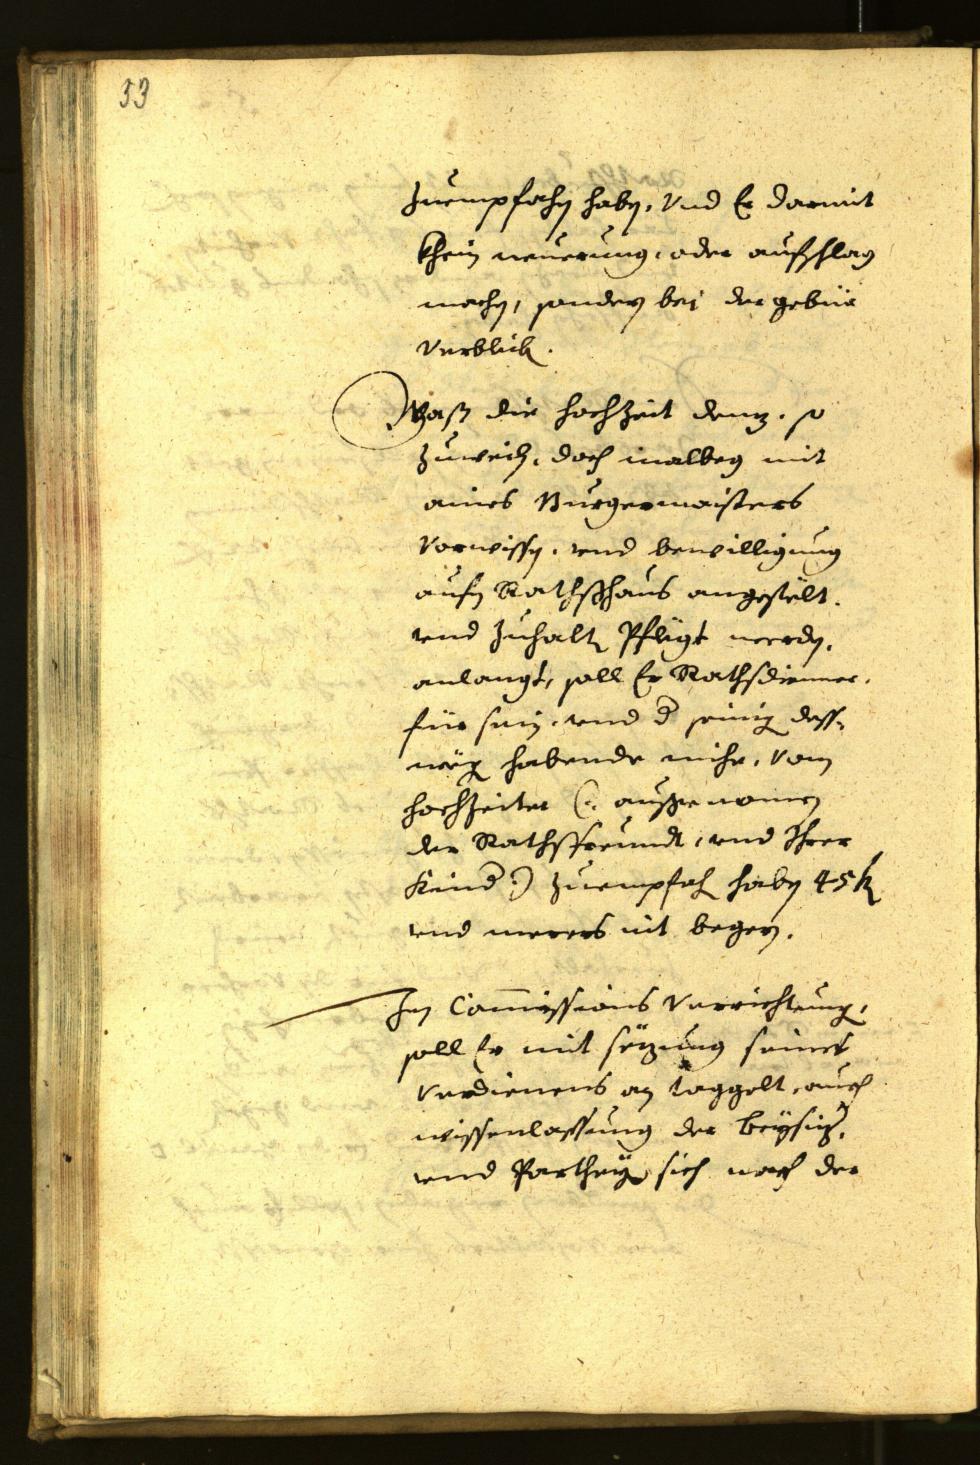 33
zuempfahen haben, Vnd Er darmit
khein neuerung, oder aufschlag
machen, sondern bei der gebür
Verbleib.
Waß die hochzeit denz, so
Zuweil, doch mit
aines Burgermaisters
Vorwissen, vnd bewilligung
aufm Rathshaus angestelt,
vnd Zuhalten Pflegt werden,
anlangt, soll Er Rathsdienner,
für sein, vnd d seinigen dess-
wegen habende mihe, Vom
hochzeiter (: außgenomen
der Rathsfreundt, vnd Ihrer
Kind :) Zuempfahen haben 45 k
vnd merers nit begern.
In Commissions Verrichtung,
soll Er mit seines
Verdienens an taggelt, auch
wissenlassung der beysizer,
vnd Partheyen sich nach der